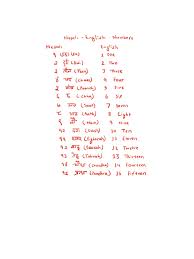 Nepali - English Numbers
Nepali English
१ एक (Ek) 1 One
२ दुई (Dui) 2 Two
३ तीन (Teen) 3 Three
४ चार (Chaar) 4 Four
५ पाँच (Paanch) 5 Five
६ छ (Chha) 6 Six
७ सात (Saat) 7 Seven
८ आठ (Aath) 8 Eight
९ नौ (Nau) 9 Nine
१० दस (Das) 10 Ten
११ (Egharah) 11 Eleven
१२ बाह्र (Baarah) 12 Twelve
१३ तेह्र (Tehrah) 13 Thirteen
१४ चौध (Chaudha) 14 Fourteen
१५ पन्ध्र (Pandhra) 15 Fifteen